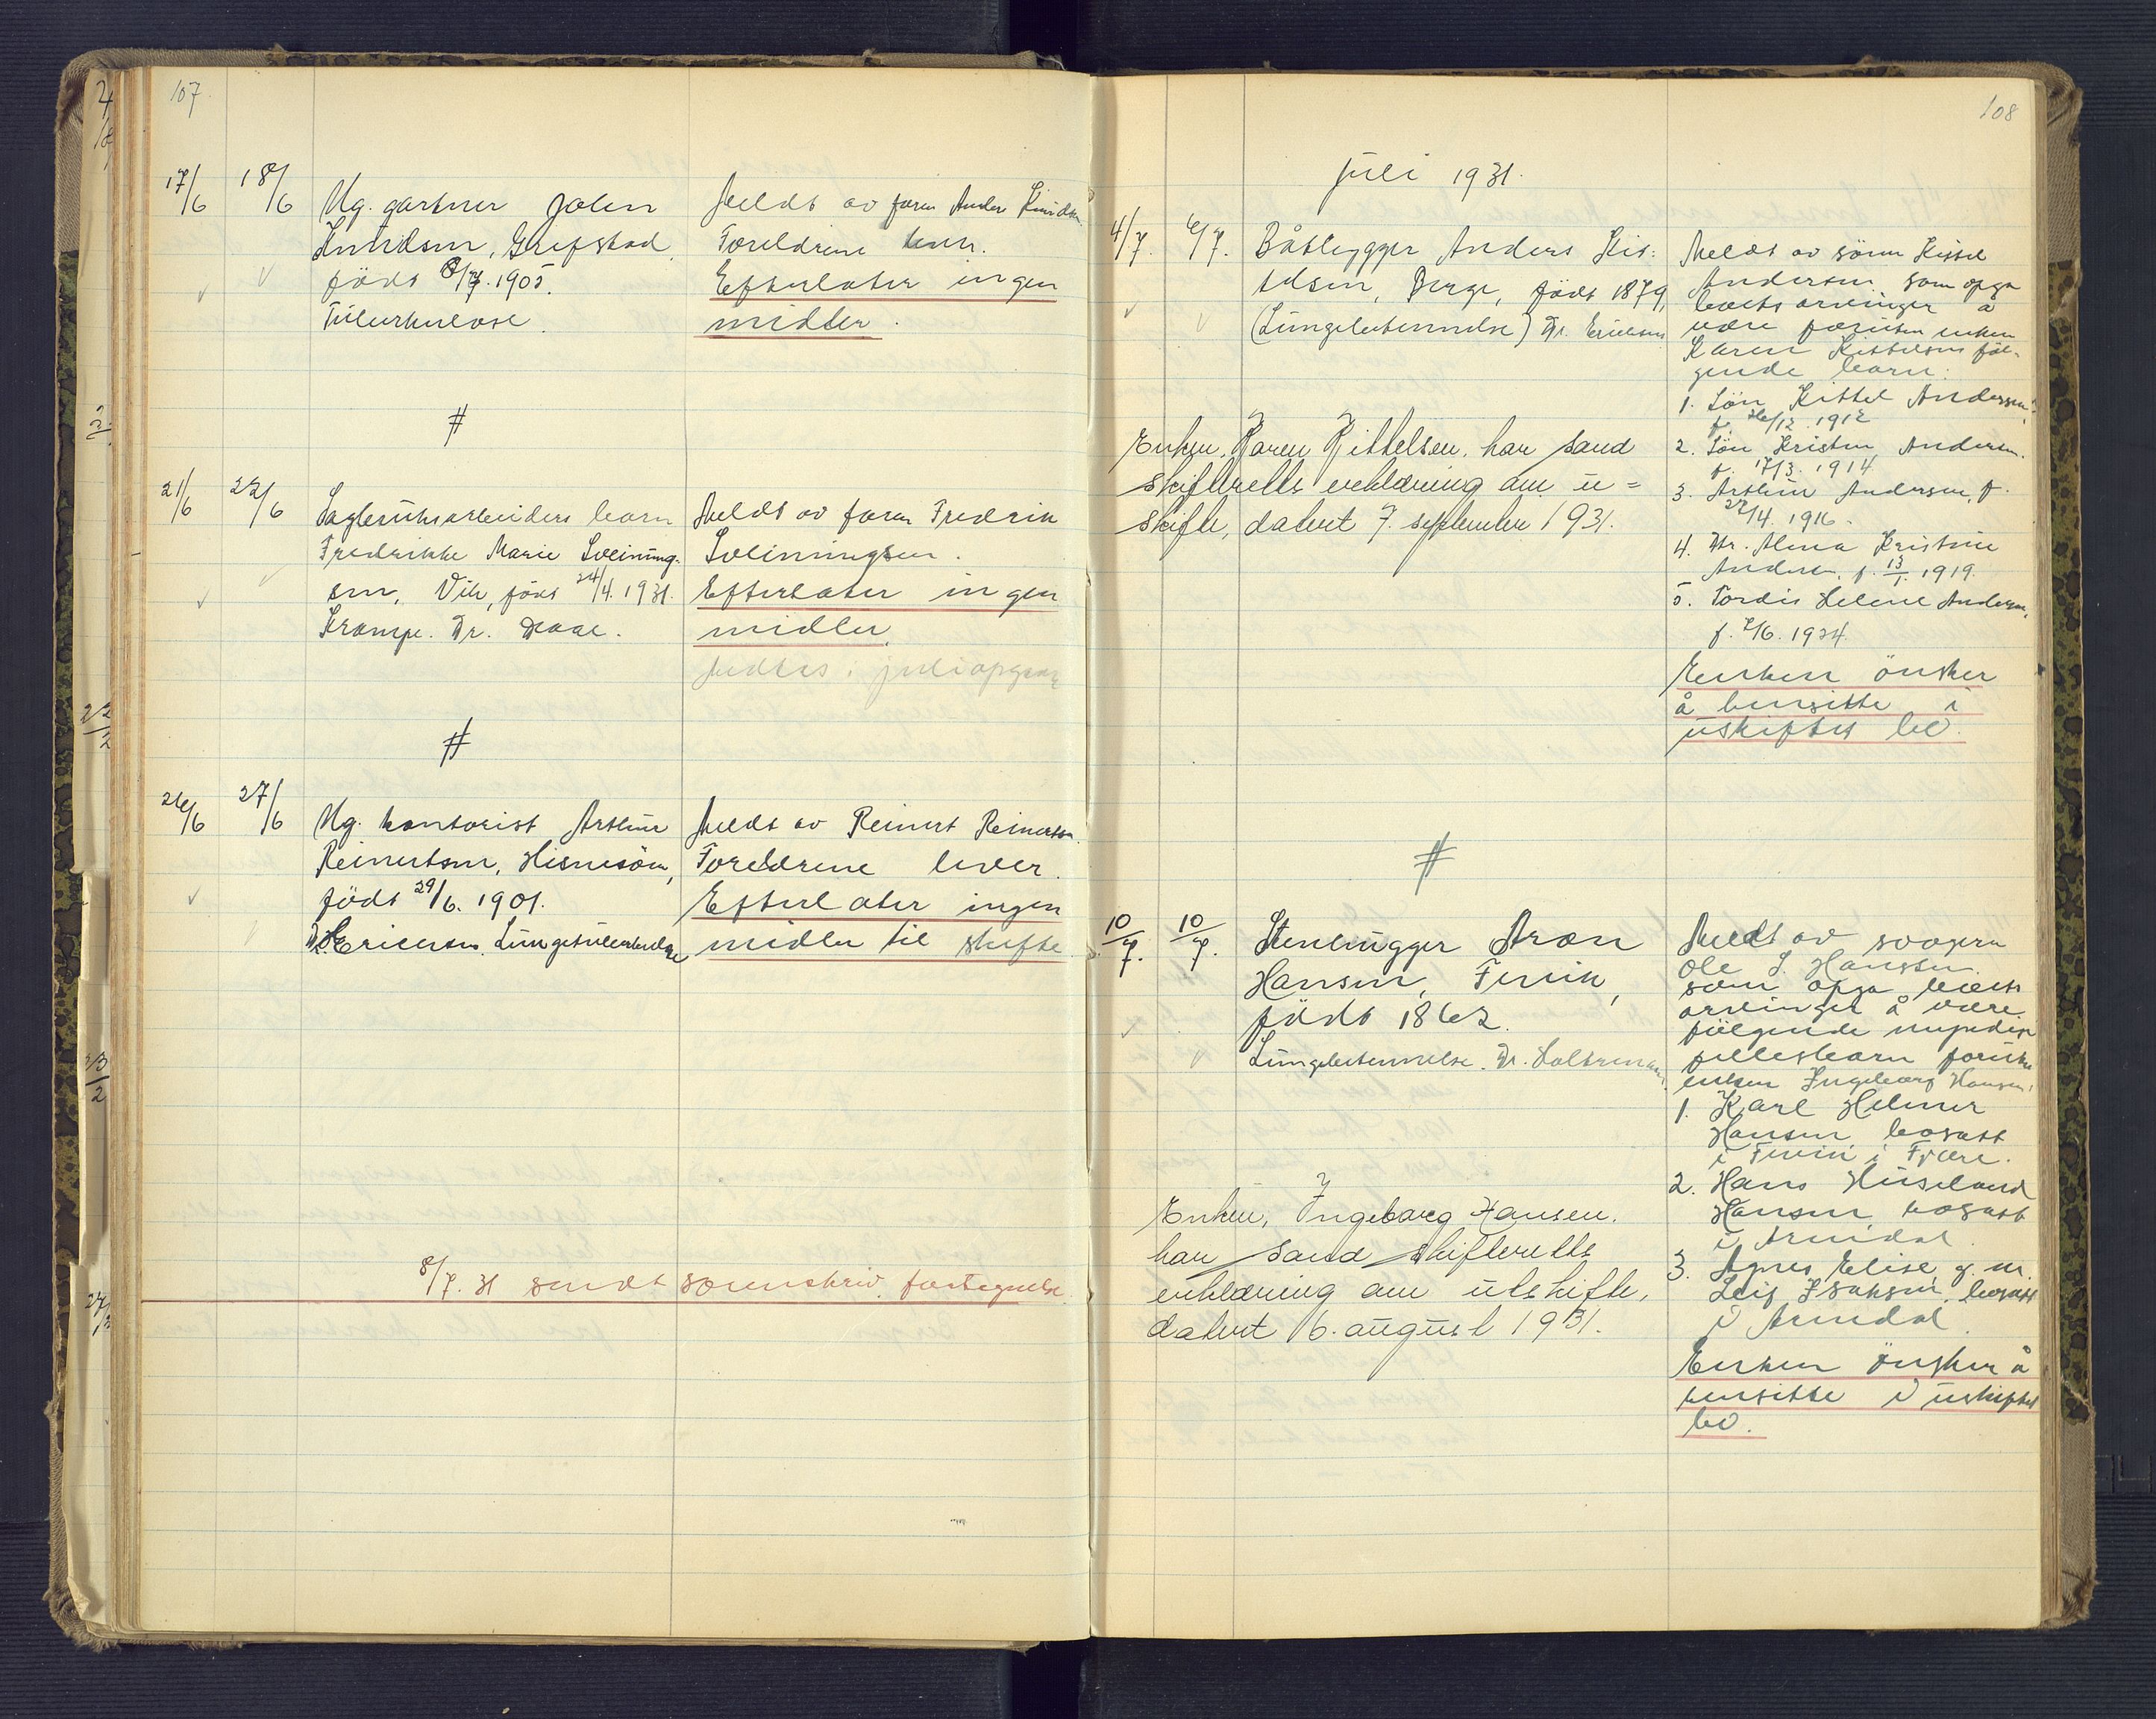 107
17/6 18/6 Ug. gartner John
Knudsen, Grefstad,
född 8/7. 1905.
Tuberkulose.
Meldt av faren Anders Knudsen
Foreldrene lever.
Efterlater ingen
midler.
#
21/6 22/6 Sagbruksarbeiders barn
Fredrikke Marie Sveinung-
sen, Vik, född 24/4. 1931.
Krampe. Dr. Daae.
Meldt av faren Fredrik
Sveinungsen.
Efterlater ingen
midler.
Medtas i juliopgave
#
26/6 27/6 Ug. kontorist Arthur
Reinertsen, Hisnesöen,
födt 29/6. 1901.
Dr. Ericksen. Lungetuberkulose
Meldt av Reinert Reinertsen.
Foreldrene lever.
Efterlater ingen
midler til skifte
8/7. 31 sendt sorenskriv. fortegnelse.
108
juli 1931.
4/7. 6/7. Båtbygger Anders Kit-
telsen, Berge, födt 1879,
(Lungebetennelse) Dr. Ericksen
Enken, Karen Kittelsen, har sand
skifteretts erklæring om u=
skifte, datert 7. september 1931.
Meldt av sönn Kittel
Andersen som opga
boets arvinger å
være foruten enken
Karen Kittelsen föl-
gende barn:
1. Sön Kittel Andersen,
f. 26/12. 1912
2. Sön Kristen Andersen.
f. 17/3. 1914
3. Arthur Andersen, f.
22/4. 1916.
4. Dr. Alma Kristine
Andersen, f. 13/1. 1919.
5. Tordis Helene Andersen,
f. 2/6. 1924.
Enken önsker
å hensitte i
uskiftet bo.
#
10/7. 10/7. Stenhugger Aron
Hansen, Fevik,
födt 1862.
Lungebetennelse. Dr. Holtermann.
Enken, Ingeborg Hansen.
har sand skifteretts
erklæring om utskifte,
datert 6. august 1931.
Meldt av svogeren
Ole S. Hanssen
som opga boets
arvinger å være
fölgende myndige
fellesbarn foruten
enken Ingeborg Hansen:
1. Karl Helmer
Hansen, bosatt
i Fevik i Fjære.
2. Hans Huseland
Hansen, bosatt
i Arendal.
3. Agnes Elise, g. m.
Leif Isaksen, bosatt
i Arendal.
Enken önsker å
hensitte i uskiftet
bo.